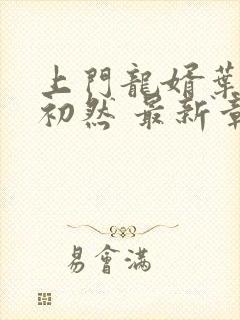 上門龍婿葉
初然 最新章
易會滿